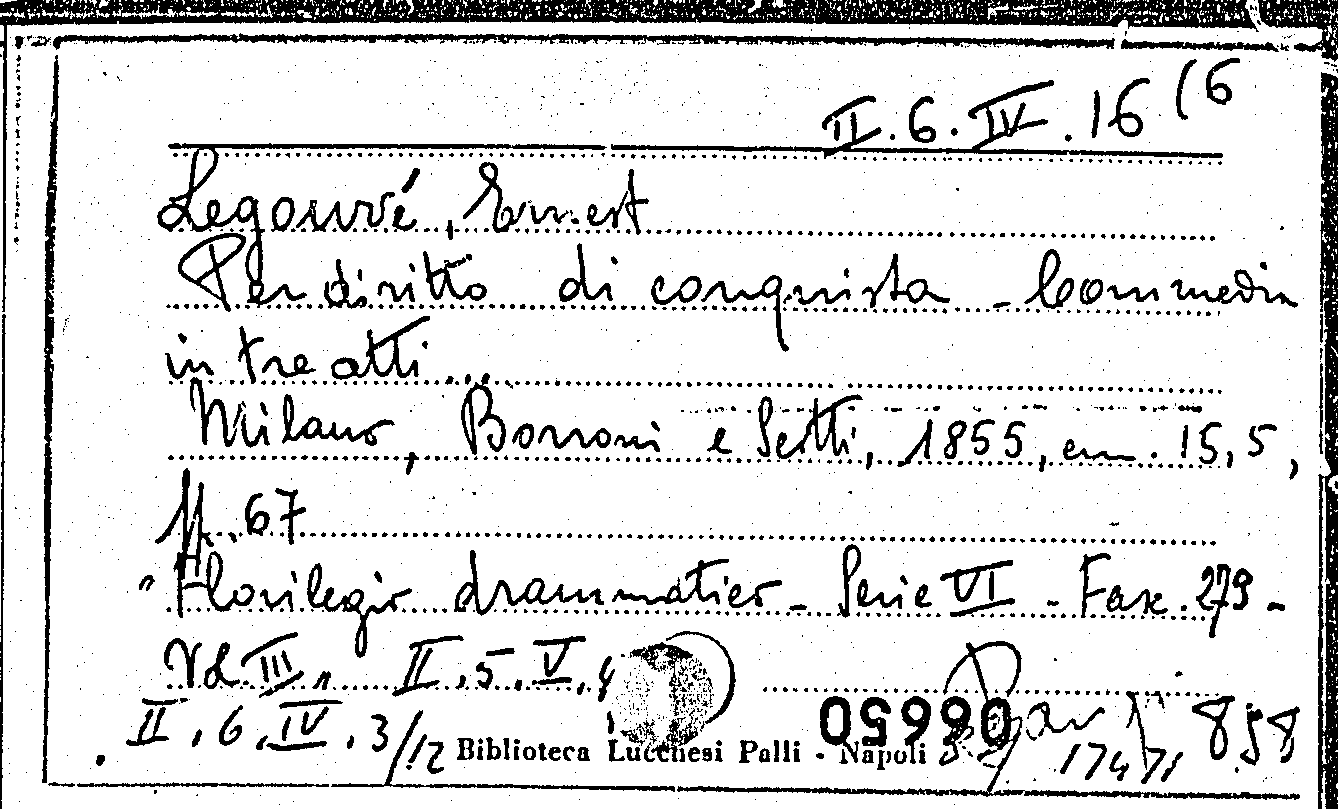 II.6.IV.16 (6
Legouvé, Ernest
Per diritto di conquista - Commedia
in tre atti...
Milano, Borroni e Scotti, 1855, cm. 15,5,
pp. 67
"Florilegio drammatico - Serie VI - Fasc. 279 -
Vol. III" II.5.V.4
II.6.IV.3/12
Biblioteca Lucchesi Palli - Napoli
066650
858
17471